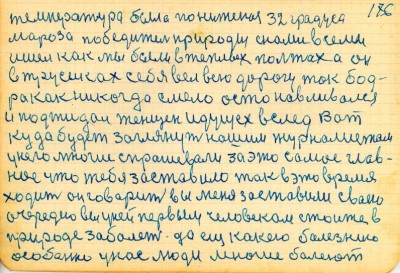 186
температура была пониженая 32 градуса
мароза победител природы снами всеми
ишел как мы были в теплых полтах а он
в трусиках себя вел всю дорогу так бод-
ра как никогда смело остонавливался
и поджидал женщен идущех вслед Вот
куда будет заглянут нашим журналистам
унего многие спрашевали за это самое глав-
ное что тебя заставило так в это время
ходит он говарит вы меня заставили сваею
очередю выуней первым человекам стоите в
природе заболет да ищ какею болезнию
особенно унас люди многие болеют